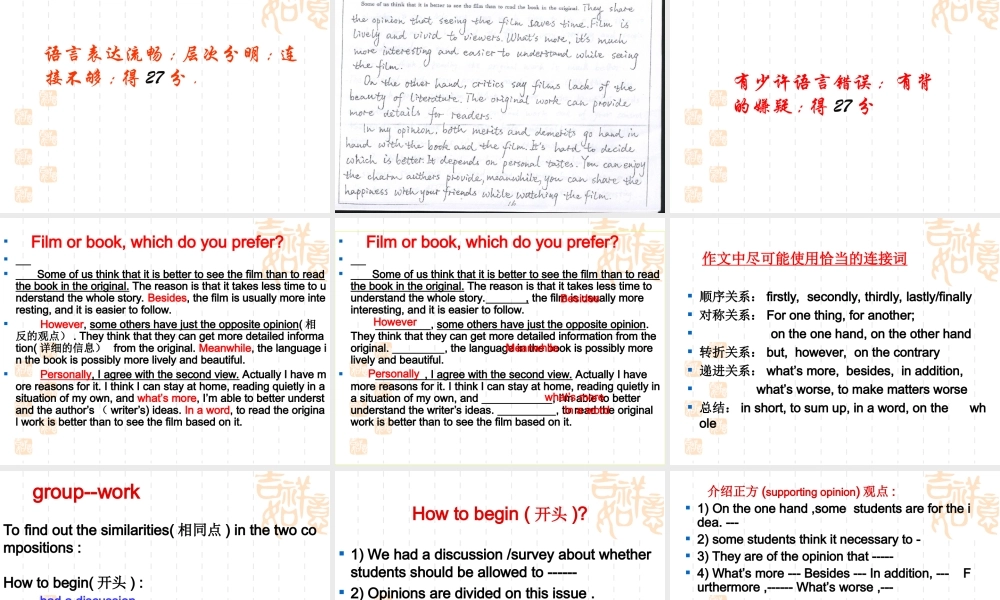 语言表达流畅；层次分明；连
接不够；得 27 分．
Some of us think that it is better to see the film than to read the book in the original. They share
the opinion that seeing the film saves time. Film is
lively and vivid to viewers. What's more, it's much
more interesting and easier to understand while seeing
the film.
On the other hand, critics say films lack of the
beauty of literature. The original work can provide
more details for readers.
In my opinion, both merits and demerits go hand in
hand with the book and the film. It's hard to decide
which is better. It depends on personal tastes. You can enjoy
the charm authers provide, meanwhile, you can share the
happiness with your friends while watching the film.
有少许语言错误；有背
的嫌疑；得 27 分
Film or book, which do you prefer?
Some of us think that it is better to see the film than to read
the book in the original. The reason is that it takes less time to u
nderstand the whole story. Besides, the film is usually more inte
resting, and it is easier to follow.
However, some others have just the opposite opinion( 相
反的观点） . They think that they can get more detailed informa
tion( 详细的信息） from the original. Meanwhile, the language i
n the book is possibly more lively and beautiful.
Personally, I agree with the second view. Actually I have m
ore reasons for it. I think I can stay at home, reading quietly in a
situation of my own, and what's more, I'm able to better underst
and the author's （ writer's) ideas. In a word, to read the origina
l work is better than to see the film based on it.
Film or book, which do you prefer?
Some of us think that it is better to see the film than to read
the book in the original. The reason is that it takes less time to
understand the whole story. _______, the film is usually more
Besides
interesting, and it is easier to follow.
However
_________, some others have just the opposite opinion.
They think that they can get more detailed information from the
original. _________, the language in the book is possibly more
Meanwhile
lively and beautiful.
Personally
_________ , I agree with the second view. Actually I have
more reasons for it. I think I can stay at home, reading quietly in
a situation of my own, and ____________, I'm able to better
what's more
understand the writer's ideas. __________, to read the original
In a word
work is better than to see the film based on it.
作文中尽可能使用恰当的连接词
顺序关系： firstly, secondly, thirdly, lastly/finally
对称关系： For one thing, for another;
on the one hand, on the other hand
转折关系： but, however, on the contrary
递进关系： what's more, besides, in addition,
what's worse, to make matters worse
总结： in short, to sum up, in a word, on the wh
ole
group--work
To find out the similarities( 相同点 ) in the two co
mpositions :
How to begin( 开头 ) :
had a discussion
How to begin ( 开头 )?
1) We had a discussion /survey about whether
students should be allowed to ------
2) Opinions are divided on this issue .
介绍正方 (supporting opinion) 观点 :
1) On the one hand ,some students are for the i
dea. ---
2) some students think it necessary to -
3) They are of the opinion that -----
4) What's more --- Besides --- In addition, --- F
urthermore ,------ What's worse ,---